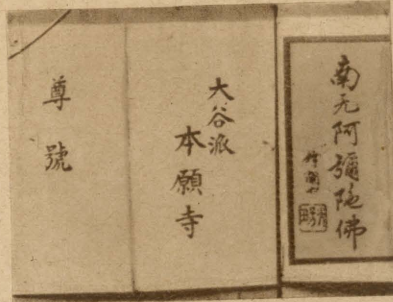 南无阿彌陀佛
大谷派
本願寺
尊號